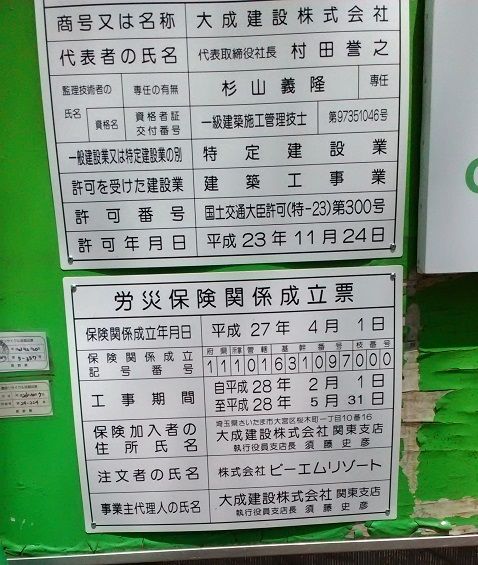 商号又は名称 大成建設株式会社
代表者の氏名 代表取締役社長 村田誉之
監理技術者の氏名 専任の有無 杉山義隆 専任
資格名 資格者証交付番号 一級建築施工管理技士 第97351046号
一般建設業又は特定建設業の別 特定建設業
許可を受けた建設業 建築工事業
許可番号 国土交通大臣許可(特-23)第300号
許可年月日 平成23年11月24日
労災保険関係成立票
保険関係成立年月日 平成27年4月1日
保険関係成立記号番号 府県 所掌 管轄 基幹番号 枝番号
11101631097000
工事期間 自平成28年2月1日
至平成28年5月31日
保険加入者の住所氏名 埼玉県さいたま市大宮区桜木町一丁目10番16
大成建設株式会社 関東支店
執行役員支店長 須藤史彦
注文者の氏名 株式会社 ピーエムリゾート
事業主代理人の氏名 大成建設株式会社 関東支店
執行役員支店長 須藤史彦